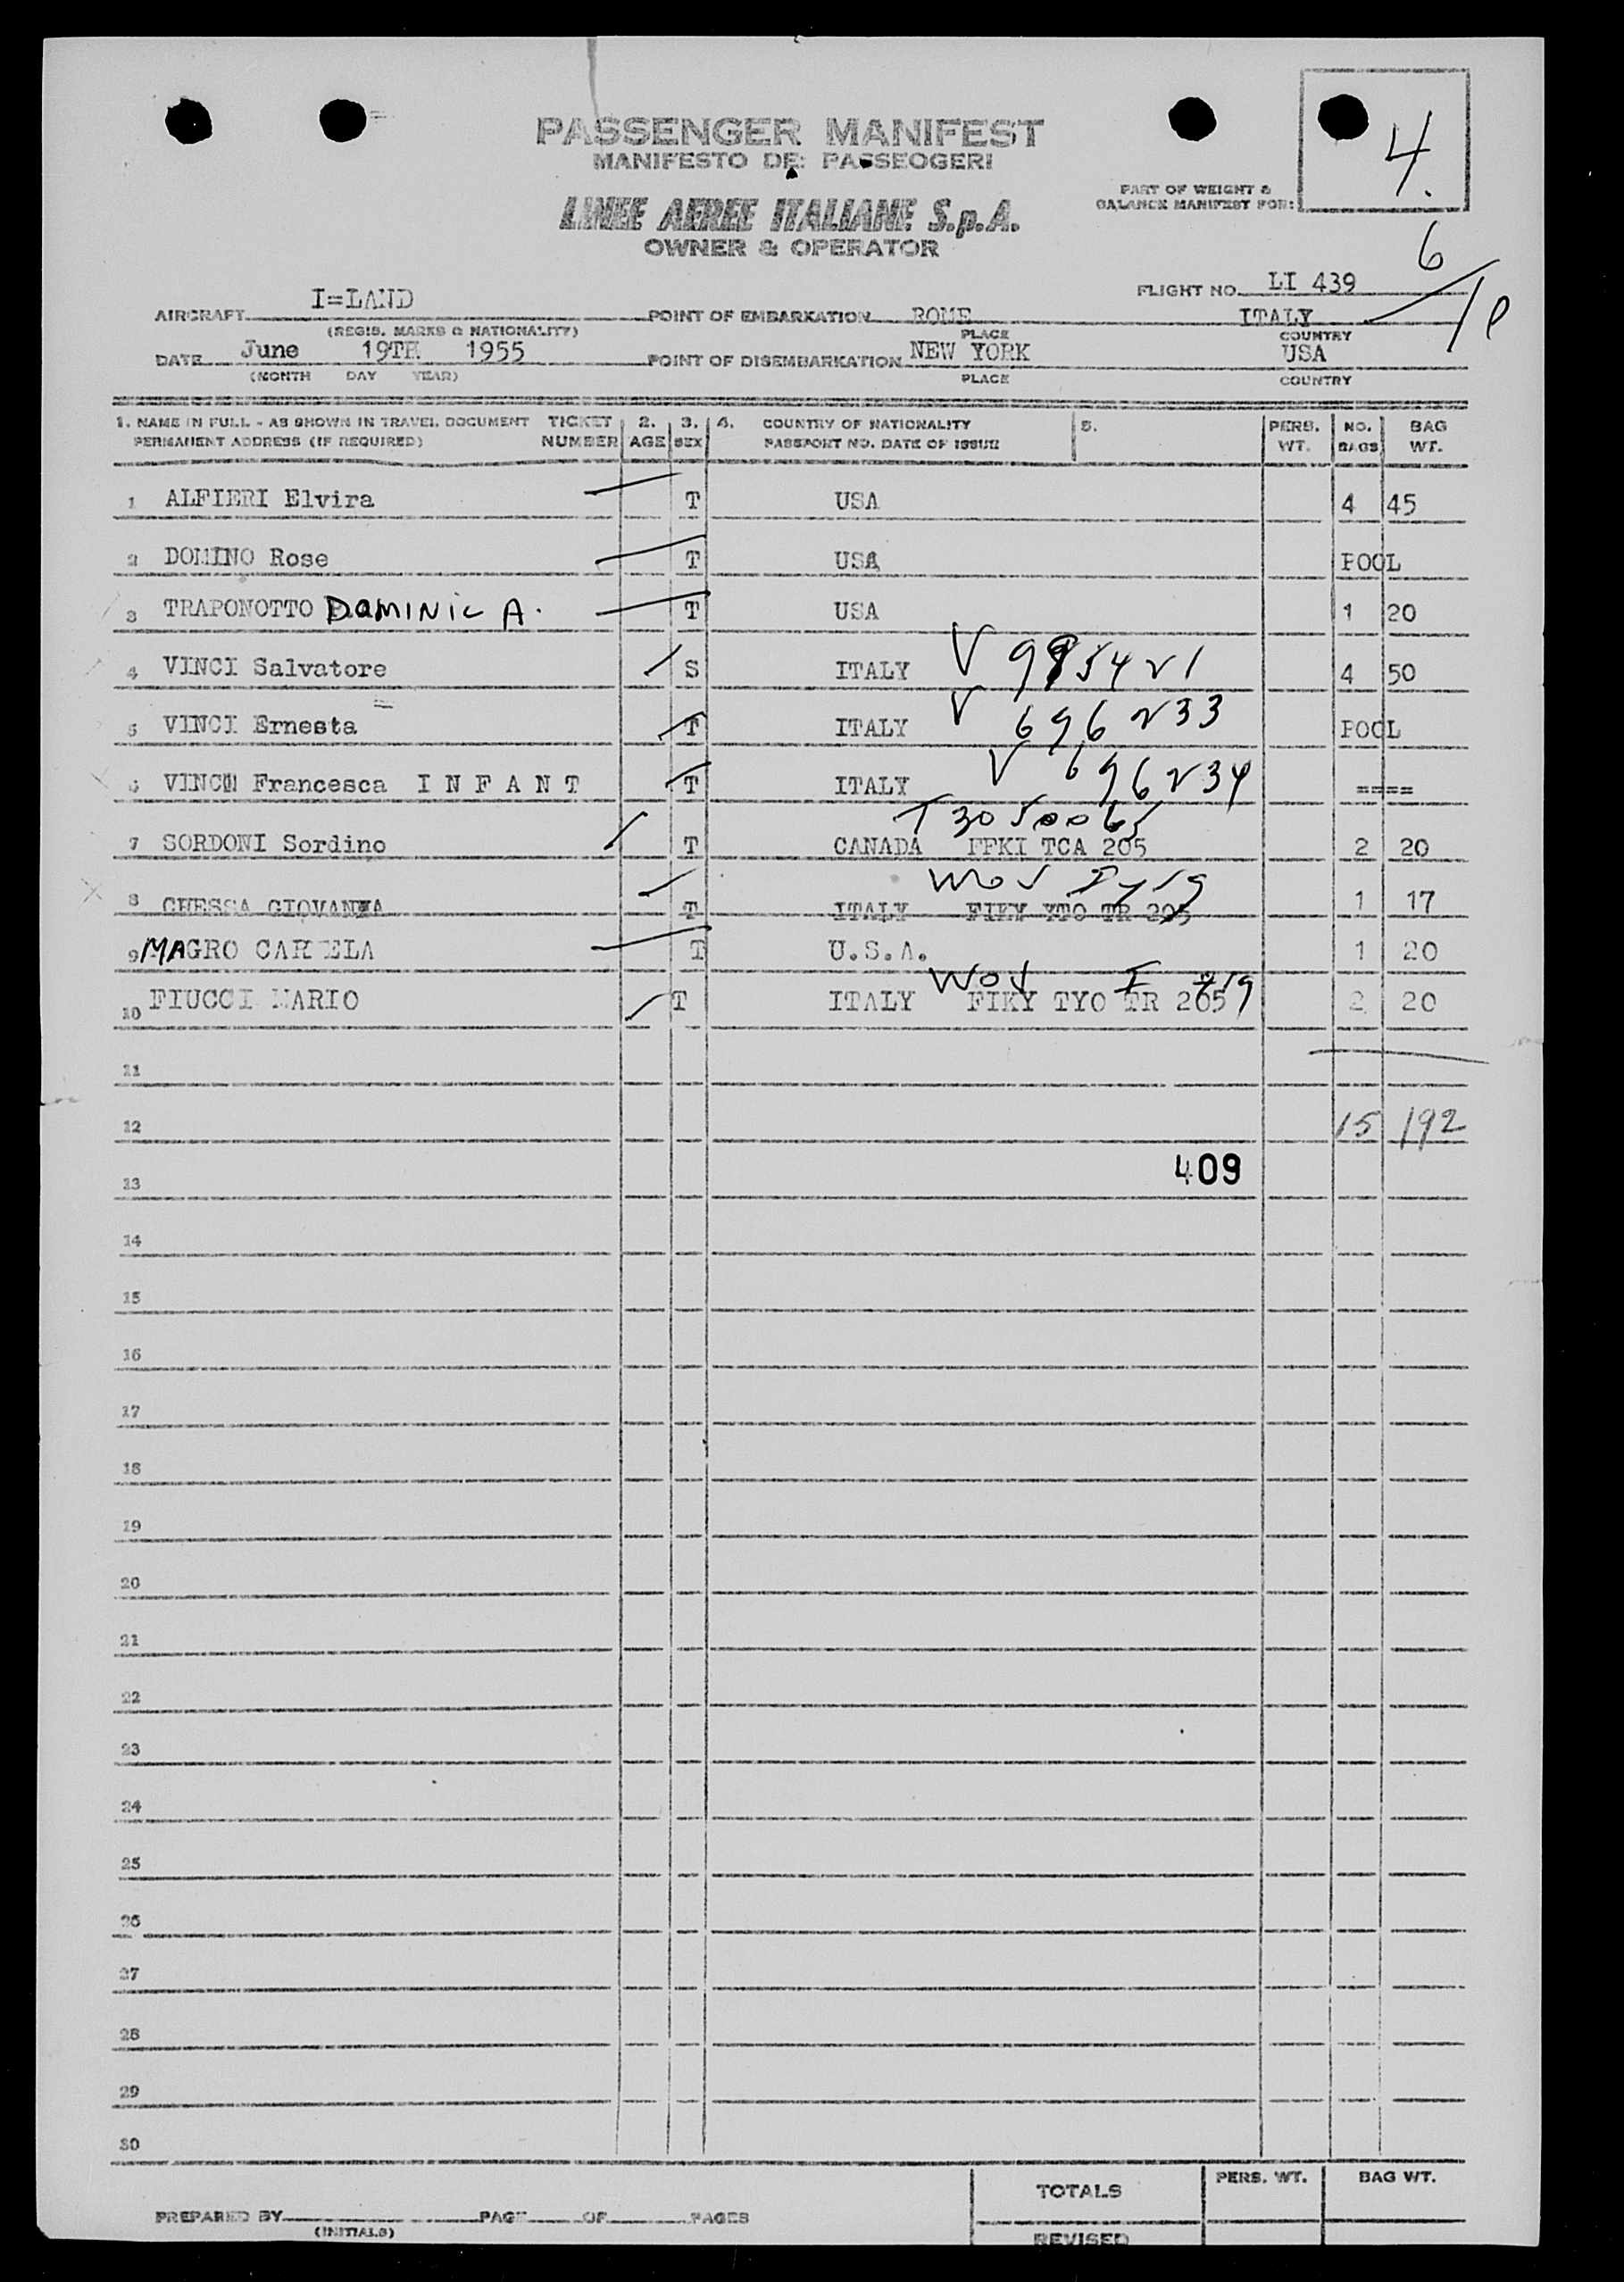 4.
PASSENGER MANIFEST
MANIFESTO DE: PASSEOGERI
PART OF WEIGHT &
BALANCE MANIFEST FOR:
LINEE AEREE ITALIANE S.p.A.
OWNER & OPERATOR
6/10
FLIGHT NO. LI 439
AIRCRAFT I=LAND POINT OF EMBARKATION ROME ITALY
(REGIS. MARKS & NATIONALITY) PLACE COUNTRY
DATE June 19TH 1955 POINT OF DISEMBARKATION NEW YORK USA
(MONTH DAY YEAR) PLACE COUNTRY
1. NAME IN FULL - AS SHOWN IN TRAVEL DOCUMENT TICKET 2. 3. 4. COUNTRY OF NATIONALITY 5. PERS. NO. BAG
PERMANENT ADDRESS (IF REQUIRED) NUMBER AGE SEX PASSPORT NO. DATE OF ISSUE WT. BAGS WT.
1 ALFIERI Elvira T USA 4 45
2 DOMINO Rose T USA POOL
3 TRAPONOTTO DOMINIC A. T USA 1 20
4 VINCI Salvatore S ITALY V 985421 4 50
5 VINCI Ernesta T ITALY V 696233 POOL
6 VINCI Francesca I N F A N T T ITALY V 696234 ====
T 3050065
7 SORDONI Sordino T CANADA FFKI TCA 205 2 20
8 CHESSA GIOVANNA T ITALY FIKY YTO TR 205 1 17
9 MAGRO CARMELA T U.S.A. 1 20
10 FIUCCI MARIO T ITALY FIKY TYO TR 205 2 20
11
12 15 192
409
13
14
15
16
17
18
19
20
21
22
23
24
25
26
27
28
29
30
TOTALS PERS. WT. BAG WT.
PREPARED BY PAGE OF PAGES
(INITIALS) REVISED